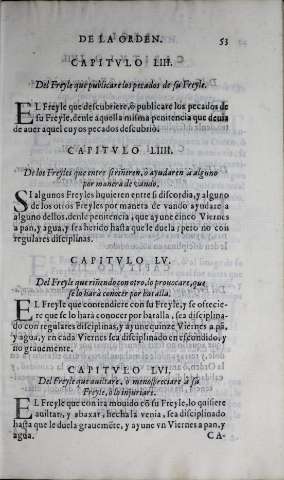 DE LA ORDEN. 53
CAPITVLO LIII.
Del Freyle que publicare los pecados de su Freyle.
EL Freyle que descubriere, ò publicare los pecados de
su Freyle, denle aquella misma penitencia que deuia
de auer aquel cuyos pecados descubriò.
CAPITVLO LIIII.
De los Freyles que entre si riñeren, ò ayudaren à alguno
por manera de vando.
SI algunos Freyles huuieren entre si discordia, y alguno
de los otros Freyles por manera de vando ayudare a
alguno dellos, denle penitencia, que ayune cinco Viernes
a pan, y agua, y sea herido hasta que le duela; pero no con
regulares disciplinas.
CAPITVLO LV.
Del Freyle que riñendo con otro, lo prouocare, que
se lo harà conocer por batalla.
EL Freyle que contendiere con su Freyle, y se ofrecie-
re que se lo harà conocer por batalla, sea disciplina-
do con regulares disciplinas, y ayune quinze Viernes a pã,
y agua, y en cada Viernes sea disciplinado en escondido, y
no grauemente.
CAPITVLO LVI.
Del Freyle que auiltare, ò menospreciare à su
Freyle, ò lo injuriare.
EL Freyle que con ira mouido cõ su Freyle, lo quisiere
auiltan, y abaxar, hecha la venia, sea disciplinado
hasta que le duela grauemẽte, y ayune vn Viernes a pan, y
agua. CA-